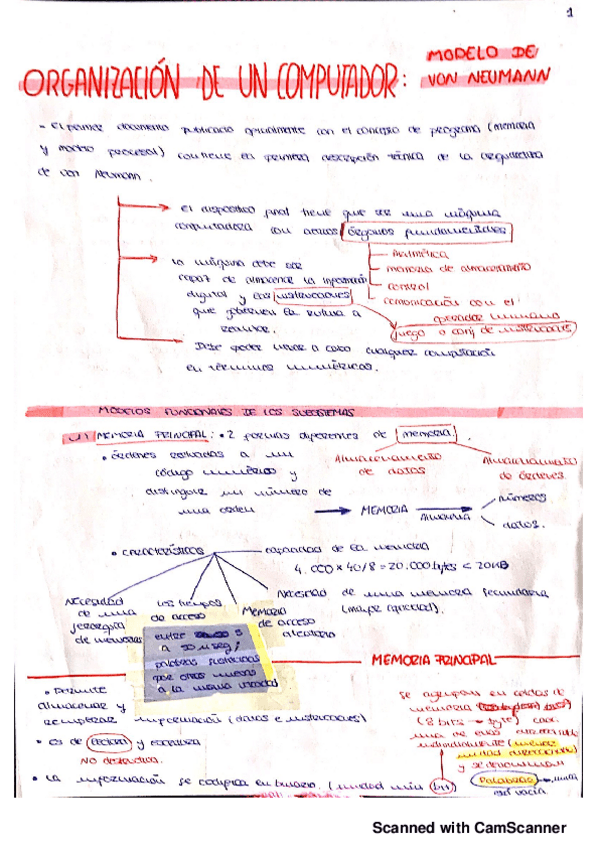 1
ORGANIZACIÓN DE UN COMPUTADOR: MODELO DE VON NEUMANN
- El primer documento publicado con el concepto de programa (memoria
y contiene la primera descripción técnica de la arquitectura
de von Neumann.
El dispositivo final tiene que ser una máquina
computadora con órganos fundamentales
Aritmética
memoria de almacenamiento
control
comunicación con el
operador humano
La máquina debe ser
capaz de almacenar la información
digital y las instrucciones
que gobiernen la rutina a
juego o conj de instrucciones
Debe poder llevar a cabo cualquier computación
en términos numéricos.
MODELOS FUNCIONALES DE LOS SUBSISTEMAS
MEMORIA PRINCIPAL: • 2 formas diferentes de memoria.
• órdenes reducidas a un
código numérico y
distinguir un número de
una orden
Almacenamiento
de datos
Almacenamiento
de órdenes
MEMORIA
Almacena
números
datos.
• características
capacidad de la memoria
4.000 × 40/8 = 20.000 bytes < 20KB
Necesidad de una memoria secundaria
(mayor capacidad).
Necesidad
de una
jerarquía
de memorias
los tiempos
de acceso
Memoria
de acceso
aleatorio
entre 5
a 50 μseg;
palabras
por otras nuevas
a la misma
MEMORIA PRINCIPAL
• Permite
almacenar y
recuperar información (datos e instrucciones)
• es de lectura y escritura
NO destructiva.
• La información se codifica en binario. (unidad mín bit)
se agrupan en celdas de
memoria
(8 bits → byte) cada
una de ellas
individualmente (menor
unidad direccionable)
y se denominan
Palabras
Scanned with CamScanner